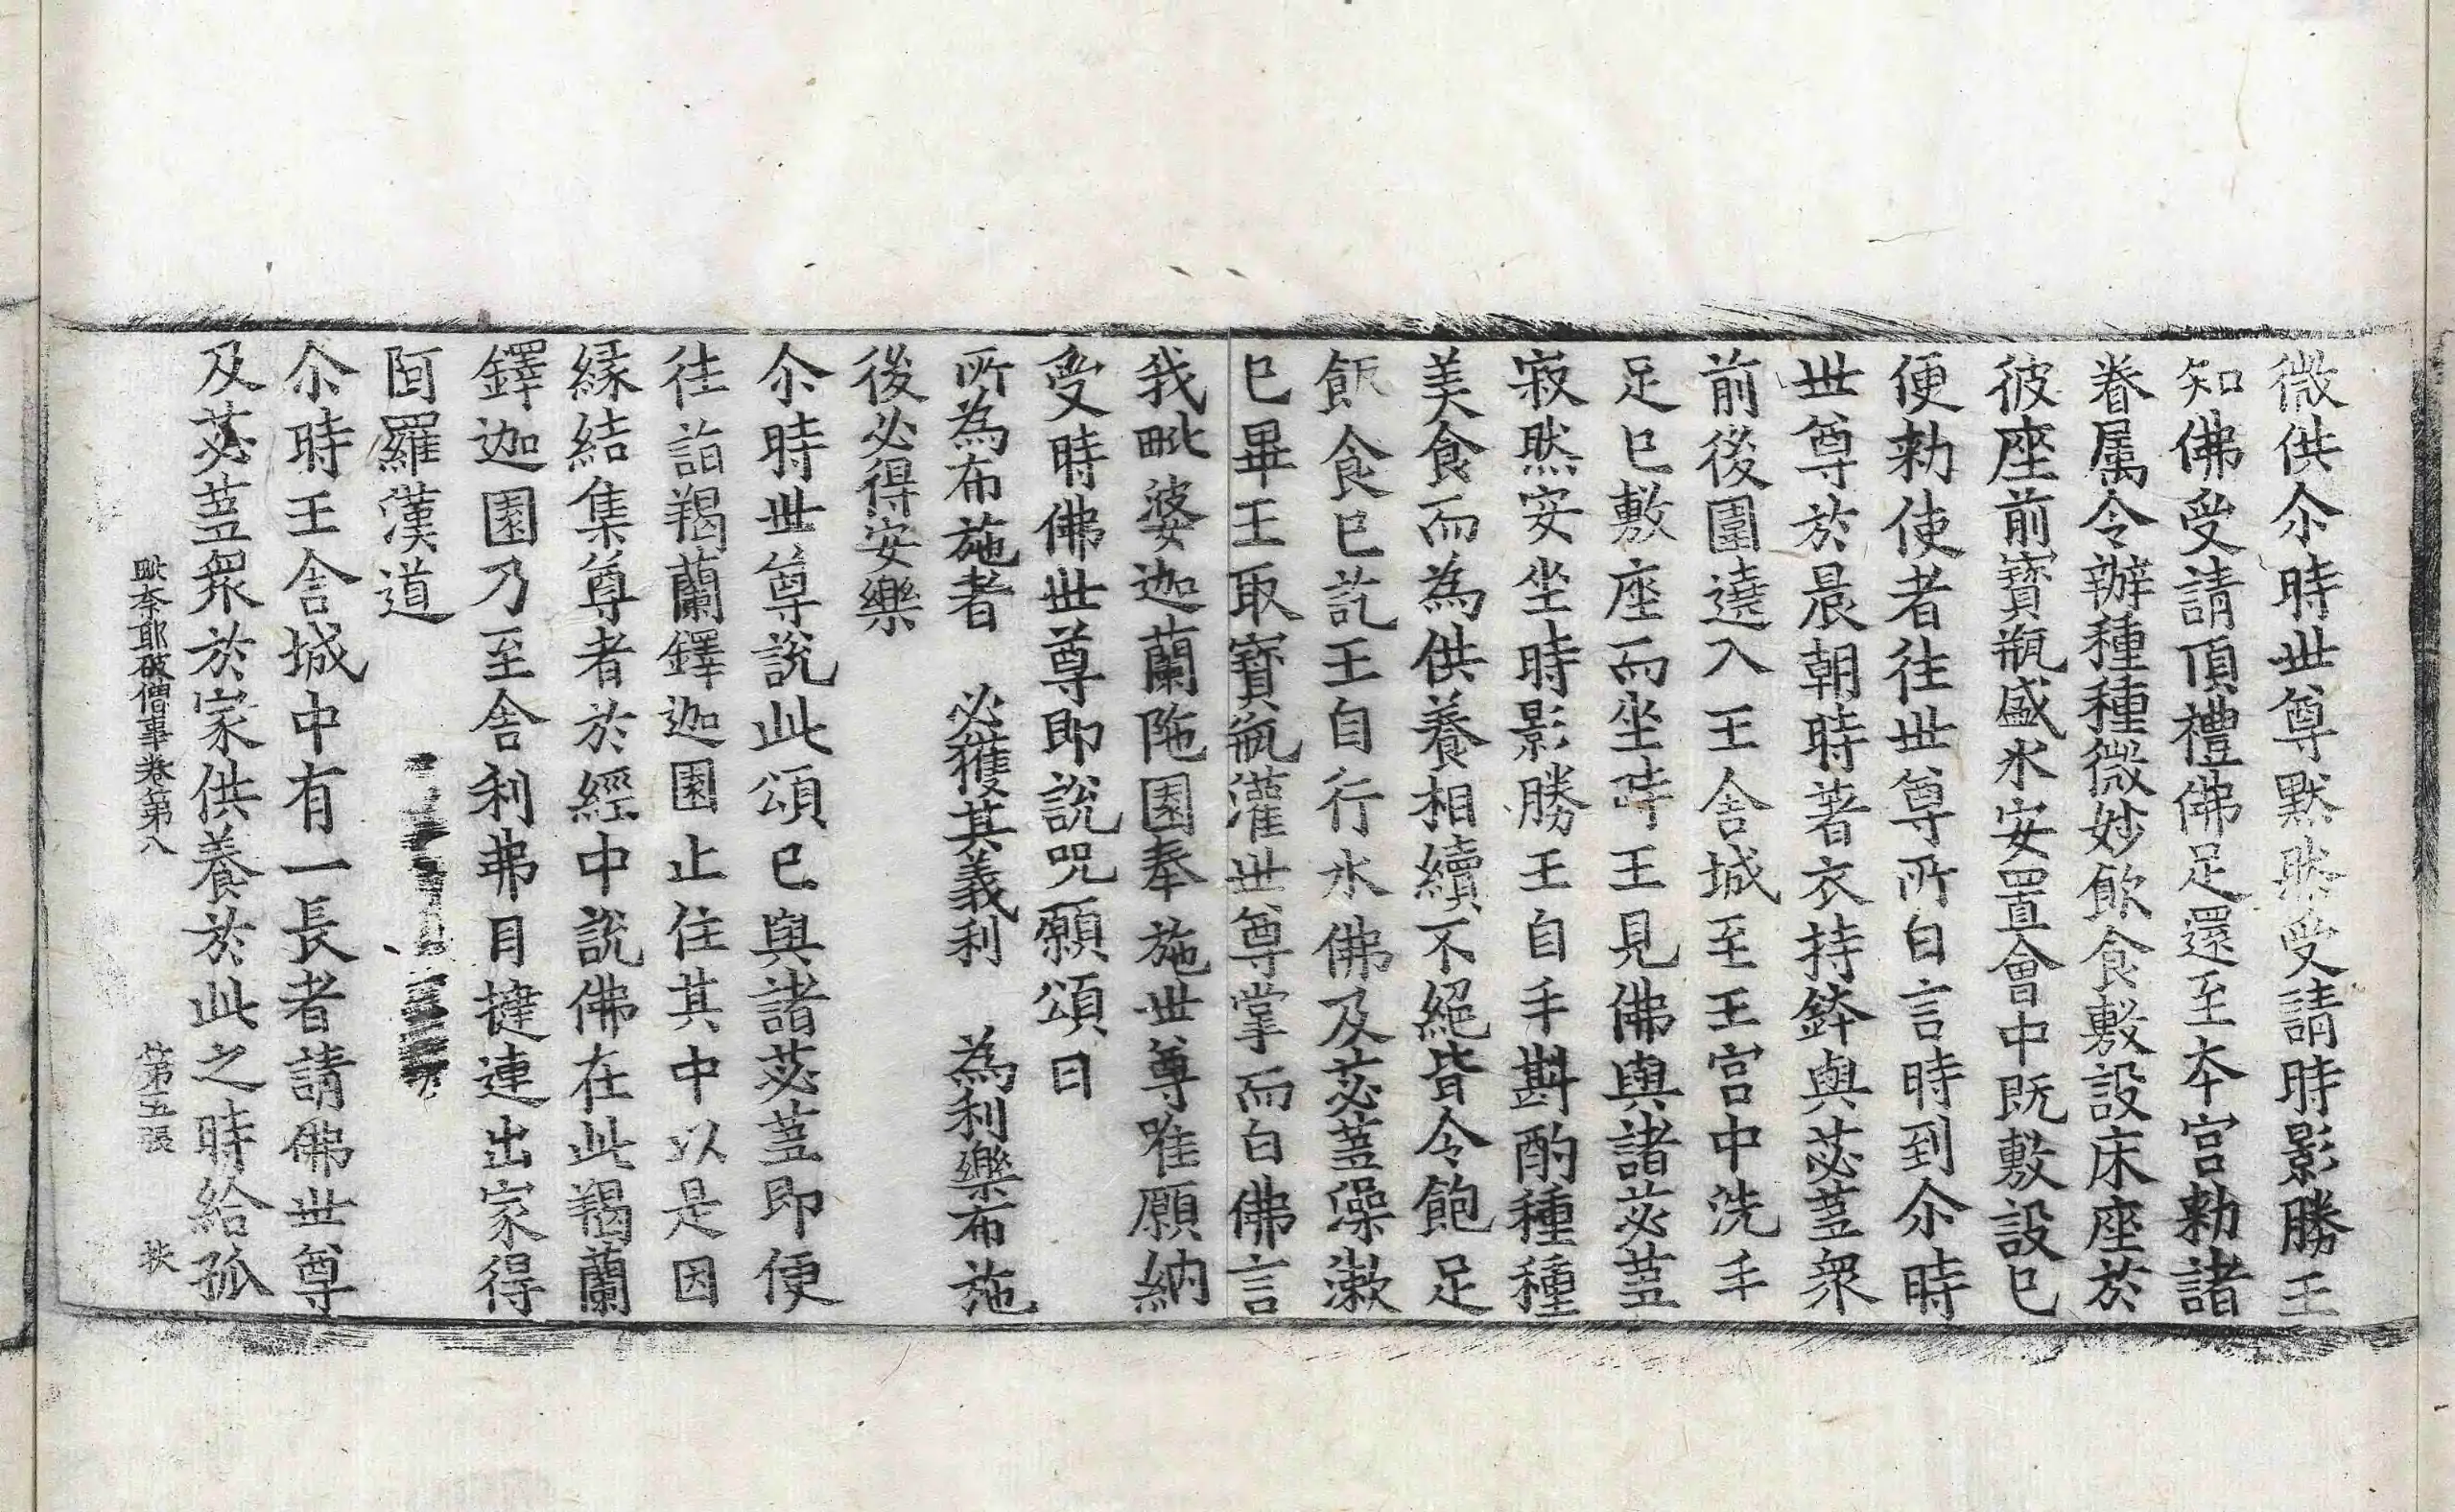 微供尒時世尊默然受請時影勝王
知佛受請頂禮佛足還至本宮勑諸
眷属令辦種種微妙飲食敷設床座於
彼座前寶瓶盛水安置會中既敷設已
便勑使者往世尊所白言時到尒時
世尊於晨朝時著衣持鉢與苾蒭衆
前後圍遶入王舍城至王宮中洗手
足已敷座而坐時王見佛與諸苾蒭
寂然安坐時影勝王自手斟酌種種
美食而為供養相續不絕皆令飽足
飯食已訖王自行水佛及苾蒭澡漱
已畢王取寶瓶灌世尊掌而白佛言
我毗婆迦蘭陁園奉施世尊唯願納
受時佛世尊即說咒願頌曰
所為布施者　必獲其義利　為利樂布施
後必得安樂
尒時世尊說此頌已與諸苾蒭即便
往詣羯蘭鐸迦園止住其中以是因
緣結集尊者於經中說佛在此羯蘭
鐸迦園乃至舍利弗目揵連出家得
阿羅漢道
尒時王舍城中有一長者請佛世尊
及苾蒭衆於家供養於此之時給孤
毗奈耶破僧事卷第八　第五張